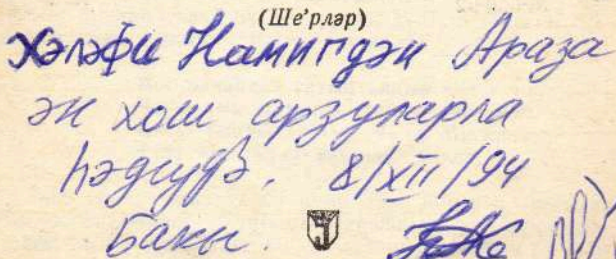 (Ше’рләр)
Хәләфи Намигдән Араза
эн хош арзуларла
һәдијјә. 8/XII/94
Бакы.